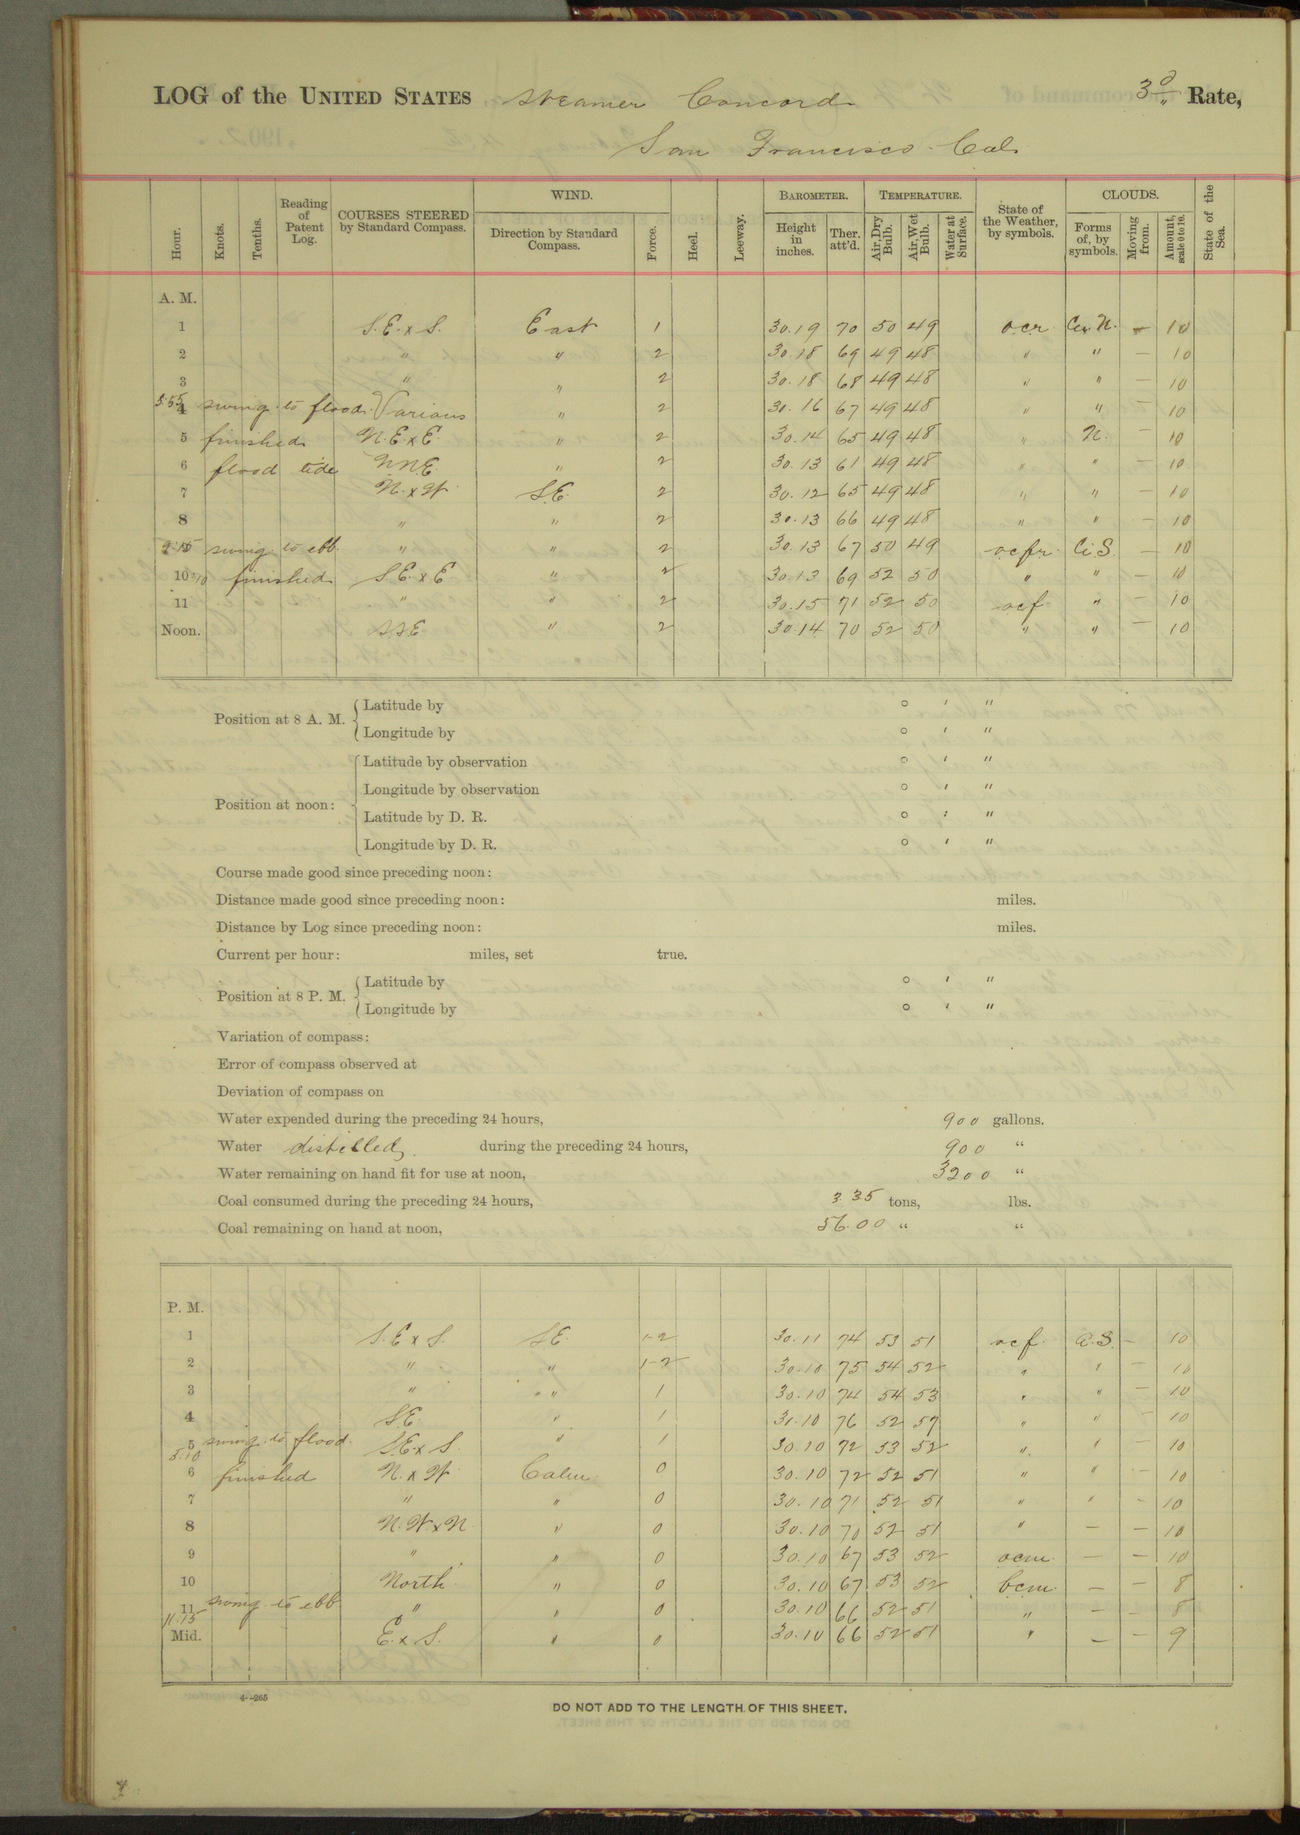 LOG of the UNITED STATES Steamer Concord 3d Rate,
San Francisco Cal.
Hour. Knots. Tenths. Reading of Patent Log. COURSES STEERED by Standard Compass. WIND. Direction by Standard Compass. Force. Heel. Leeway. BAROMETER. Height in inches. Ther. att'd. TEMPERATURE. Air, Dry Bulb. Air, Wet Bulb. Water at Surface. State of the Weather, by symbols. CLOUDS. Forms of, by symbols. Moving from. Amount, scale 0 to 10. State of the Sea.
A. M.
1 S.E. x S. East 1 30.19 70 50 49 ocr N. — 10
2 " " 2 30.18 69 49 48 " " — 10
3 " " 2 30.18 68 49 48 " " — 10
4 swing to flood. Various " 2 30.16 67 49 48 " " — 10
5 finished N.E. x E. " 2 30.14 65 49 48 " N. — 10
6 flood tide NNE " 2 30.13 61 49 48 " " — 10
7 N. x W. S.E. 2 30.12 65 49 48 " " — 10
8 " " 2 30.13 66 49 48 " " — 10
9:15 swing to ebb. " " 2 30.13 67 50 49 ocfr. Ci.S. — 10
10 10 finished S.E. x E. " 2 30.13 69 52 50 " " — 10
11 " " 2 30.15 71 52 50 ocf " — 10
Noon. SSE " 2 30.14 70 52 50 " " — 10
Position at 8 A. M. Latitude by ° ′ ″
Longitude by ° ′ ″
Position at noon: Latitude by observation ° ′ ″
Longitude by observation ° ′ ″
Latitude by D. R. ° ′ ″
Longitude by D. R. ° ′ ″
Course made good since preceding noon:
Distance made good since preceding noon: miles.
Distance by Log since preceding noon: miles.
Current per hour: miles, set true.
Position at 8 P. M. Latitude by ° ′ ″
Longitude by ° ′ ″
Variation of compass:
Error of compass observed at
Deviation of compass on
Water expended during the preceding 24 hours, 900 gallons.
Water distilled, during the preceding 24 hours, 900 "
Water remaining on hand fit for use at noon, 3200 "
Coal consumed during the preceding 24 hours, 3.35 tons, lbs.
Coal remaining on hand at noon, 56.00 " "
P. M.
1 S.E. x S. S.E. 1-2 30.11 74 53 51 ocf. — 10
2 " " 1-2 30.10 75 54 52 " " — 10
3 " " 1 30.10 74 54 53 " " — 10
4 S.E. " 1 30.10 76 52 " " — 10
5 5.10 swing to flood. S.E. x S. " 1 30.10 72 53 52 " " — 10
6 finished N. x W. Calm 0 30.10 72 52 51 " " — 10
7 " " 0 30.10 71 52 51 " " — 10
8 N.W. x N. " 0 30.10 70 52 51 " — — 10
9 " " 0 30.10 67 53 52 ocm. — — 10
10 North " 0 30.10 67 53 52 bcm. — — 8
11 11.15 swing to ebb " " 0 30.10 66 52 51 " — — 8
Mid. E. x S. " 0 30.10 66 52 51 " — — 9
4—265
DO NOT ADD TO THE LENGTH OF THIS SHEET.